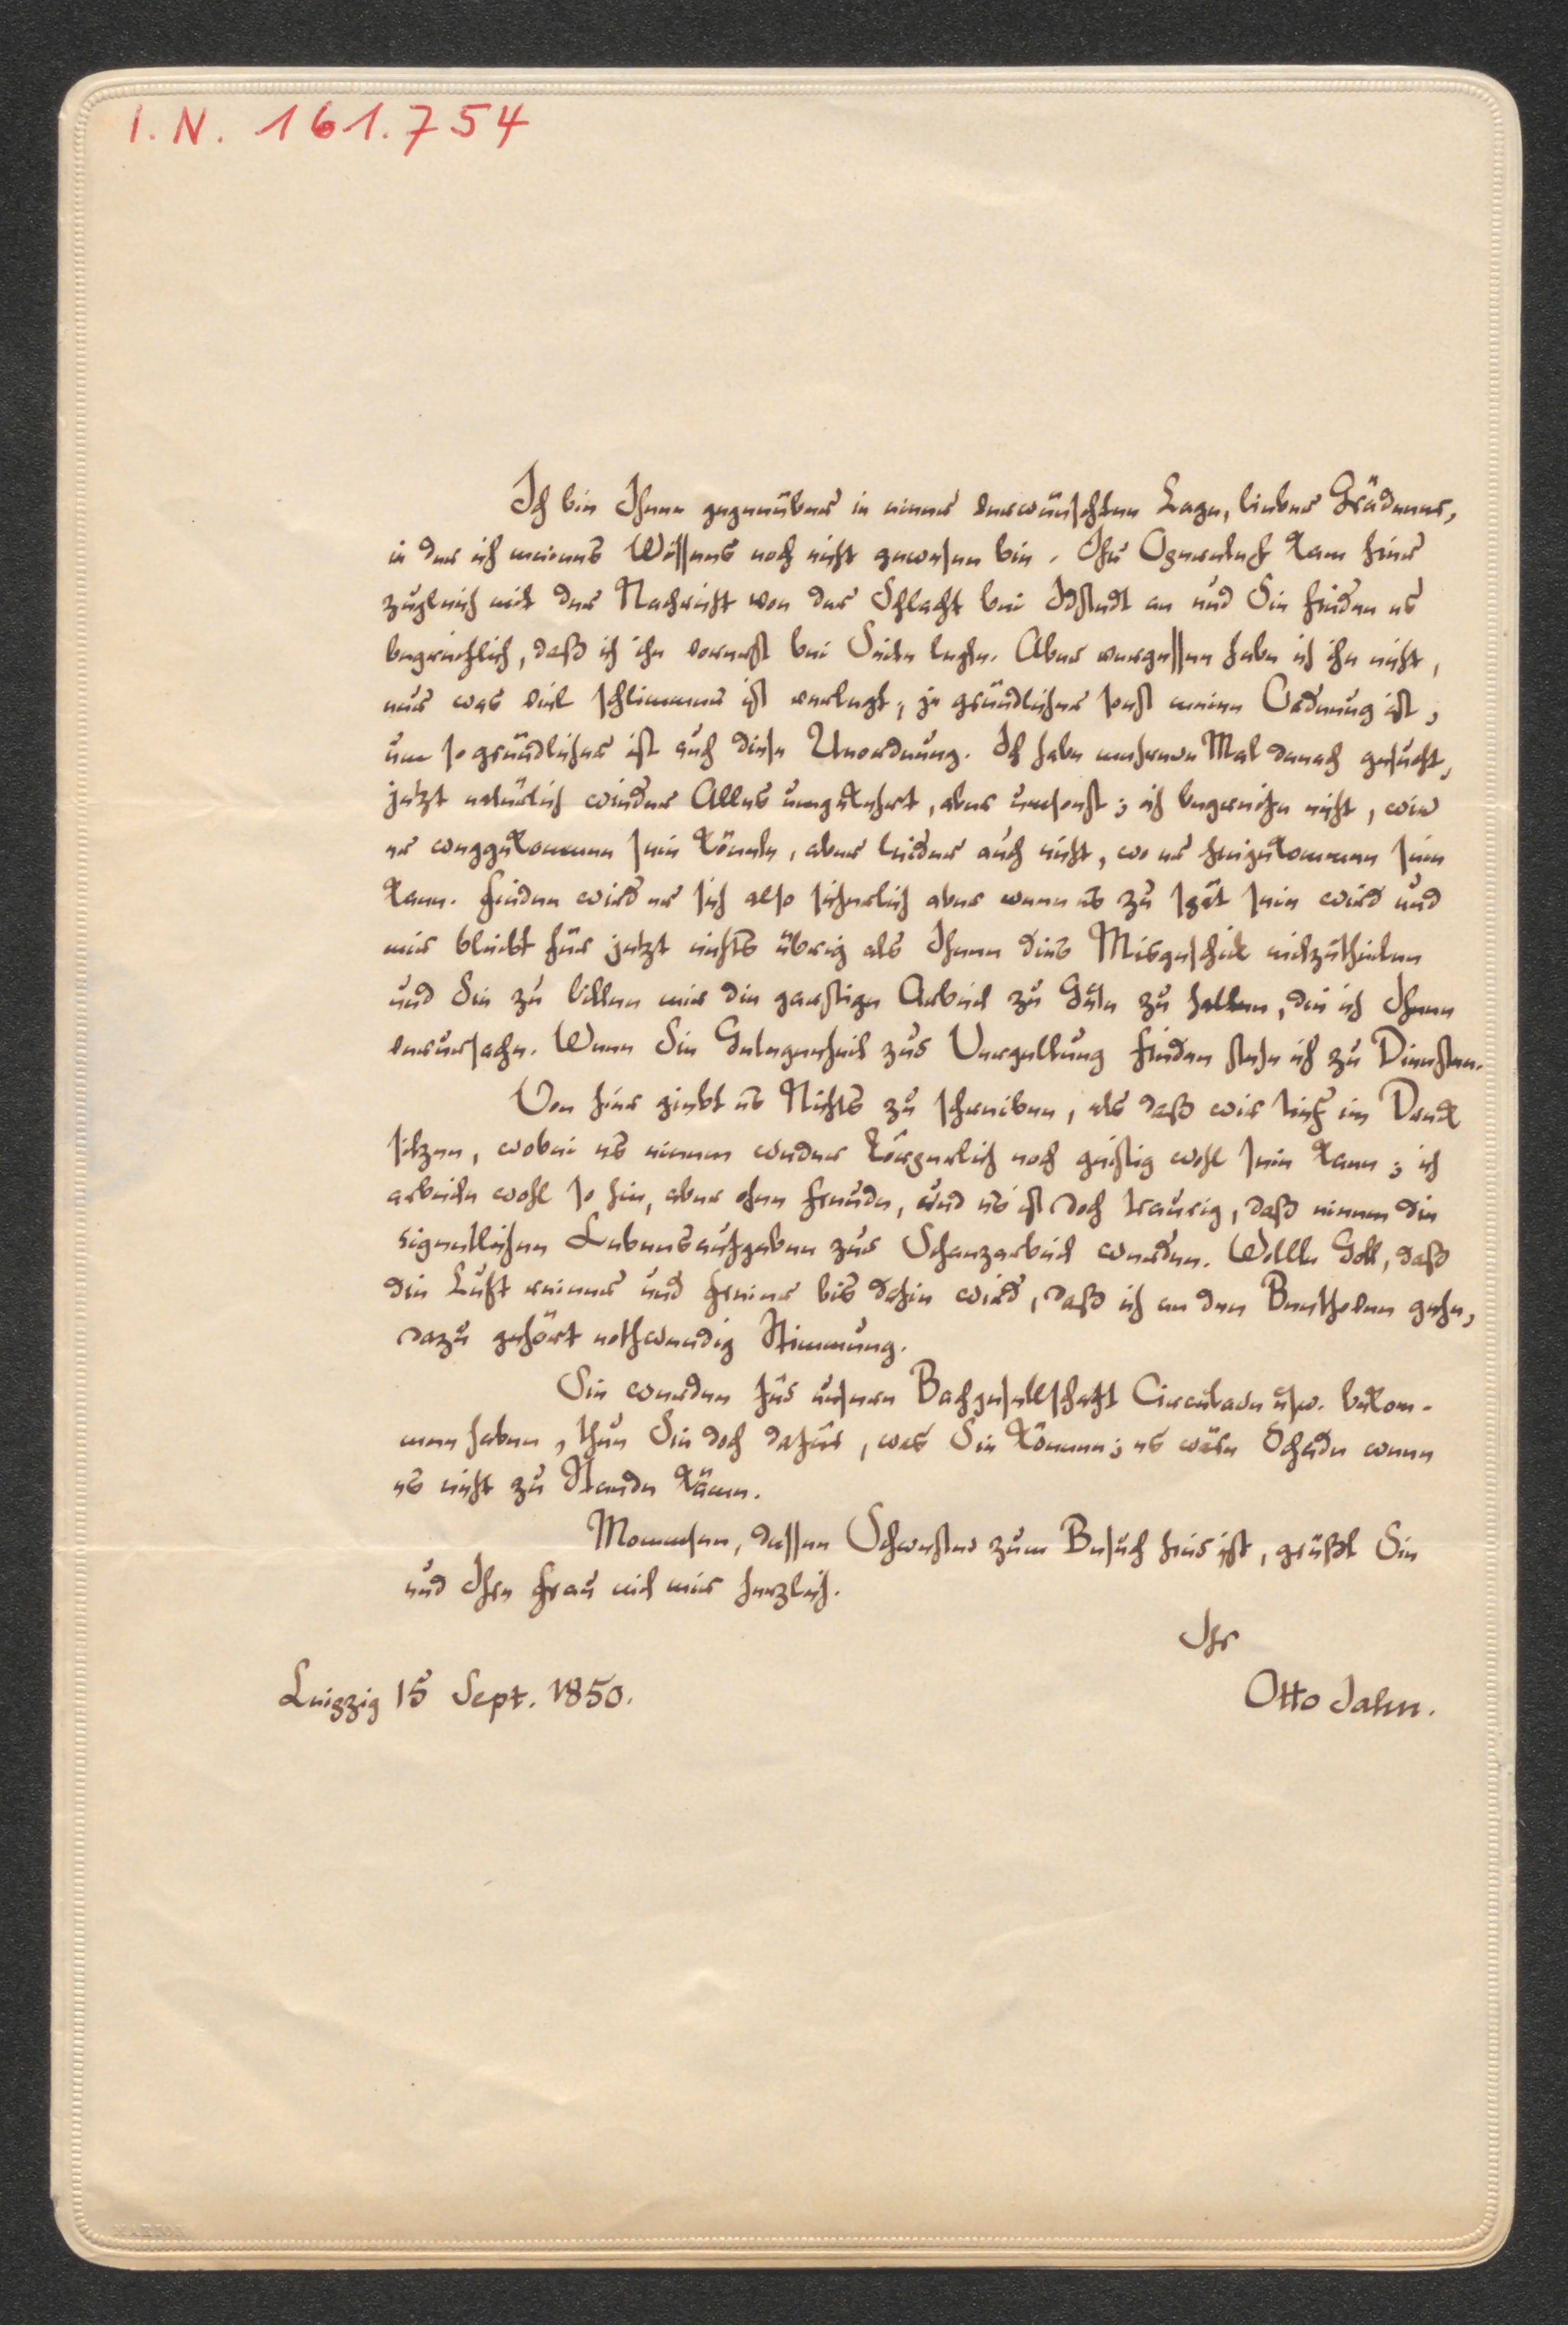 I. N. 161.754
Ich bin Ihnen gegenüber in einer verwünschten Lage, lieber Grädener,
in der ich meines Wissens noch nicht gewesen bin. Ihr Operntext kam hier
zugleich mit der Nachricht von der Schlacht bei Idstedt an und Sie finden es
begreiflich, daß ich ihn vorerst bei Seite legte. Aber vergessen habe ich ihn nicht,
nur was viel schlimmer ist verlegt; je gründlicher sonst meine Ordnung ist,
um so gründlicher ist auch diese Unordnung. Ich habe mehrere Mal danach gesucht,
jetzt natürlich wieder Alles umgekehrt, aber umsonst; ich begreife nicht, wie
er weggekommen sein könnte, aber leider auch nicht, wo er hingekommen sein
kann. Finden wird er sich also sicherlich aber wenn es zu spät sein wird und
mir bleibt für jetzt nichts übrig als Ihnen dies Misgeschick mitzutheilen
und Sie zu bitten mir die garstige Arbeit zu Gute zu halten, die ich Ihnen
verursache. Wenn Sie Gelegenheit zur Vergeltung finden stehe ich zu Diensten.
Von hier giebt es Nichts zu schreiben, als daß wir tief im Dreck
sitzen, wobei es einem weder körperlich noch geistig wohl sein kann; ich
arbeite wohl so hin, aber ohne Freude, und es ist doch traurig, daß einem die
eigentlichen Lebensaufgaben zur Schanzarbeit werden. Wollte Gott, daß
die Luft reiner und freier bis dahin wird, daß ich an den Beethoven gehe,
dazu gehört nothwendig Stimmung.
Sie werden für unsere Bachgesellschaft Circulare usw. bekom-
men haben, thun Sie doch dafür, was Sie können; es wäre Schade wenn
es nicht zu Stande käme.
Mommsen, dessen Schwester zum Besuch hier ist, grüßt Sie
und Ihre Frau mit mir herzlich.
Ihr
Leipzig 15 Sept. 1850.
Otto Jahn.
MARION